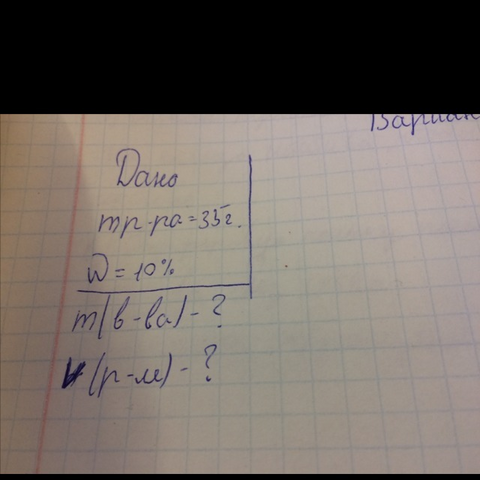 Вариан
Дано
mр-ра=35г.
W=10%
m(в-ва)-?
(р-ле)-?